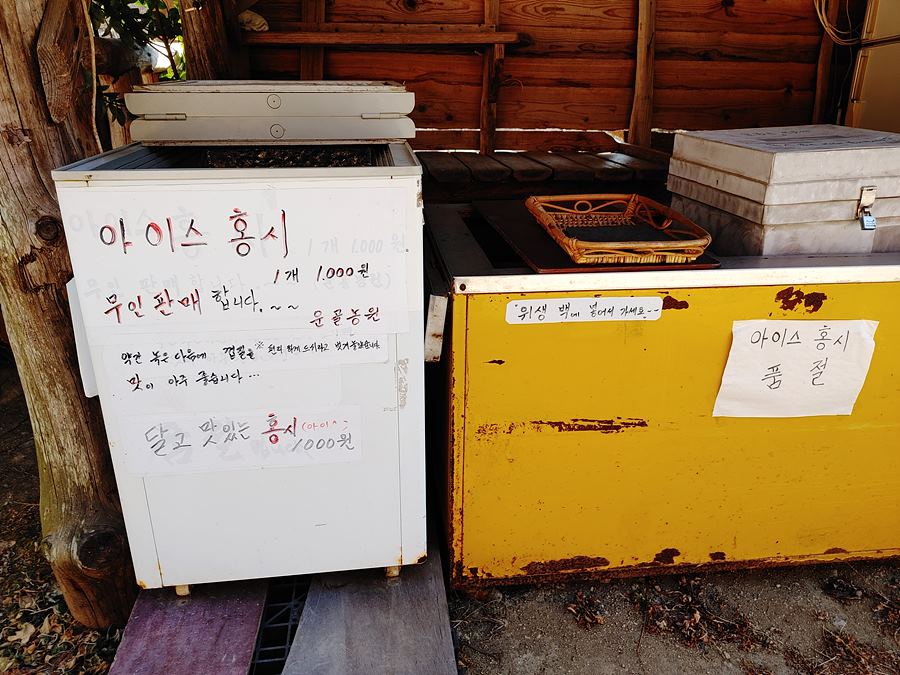 아이스 홍시
1개 1.000원
무인판매 합니다.~~
운골농원
약간 녹은 다음에 껍질을
맛이 아주 좋습니다...
달고 맛있는 홍시 (아이^)
1000원
위생 백에 넣어서 가세요~~
아이스 홍시
품 절